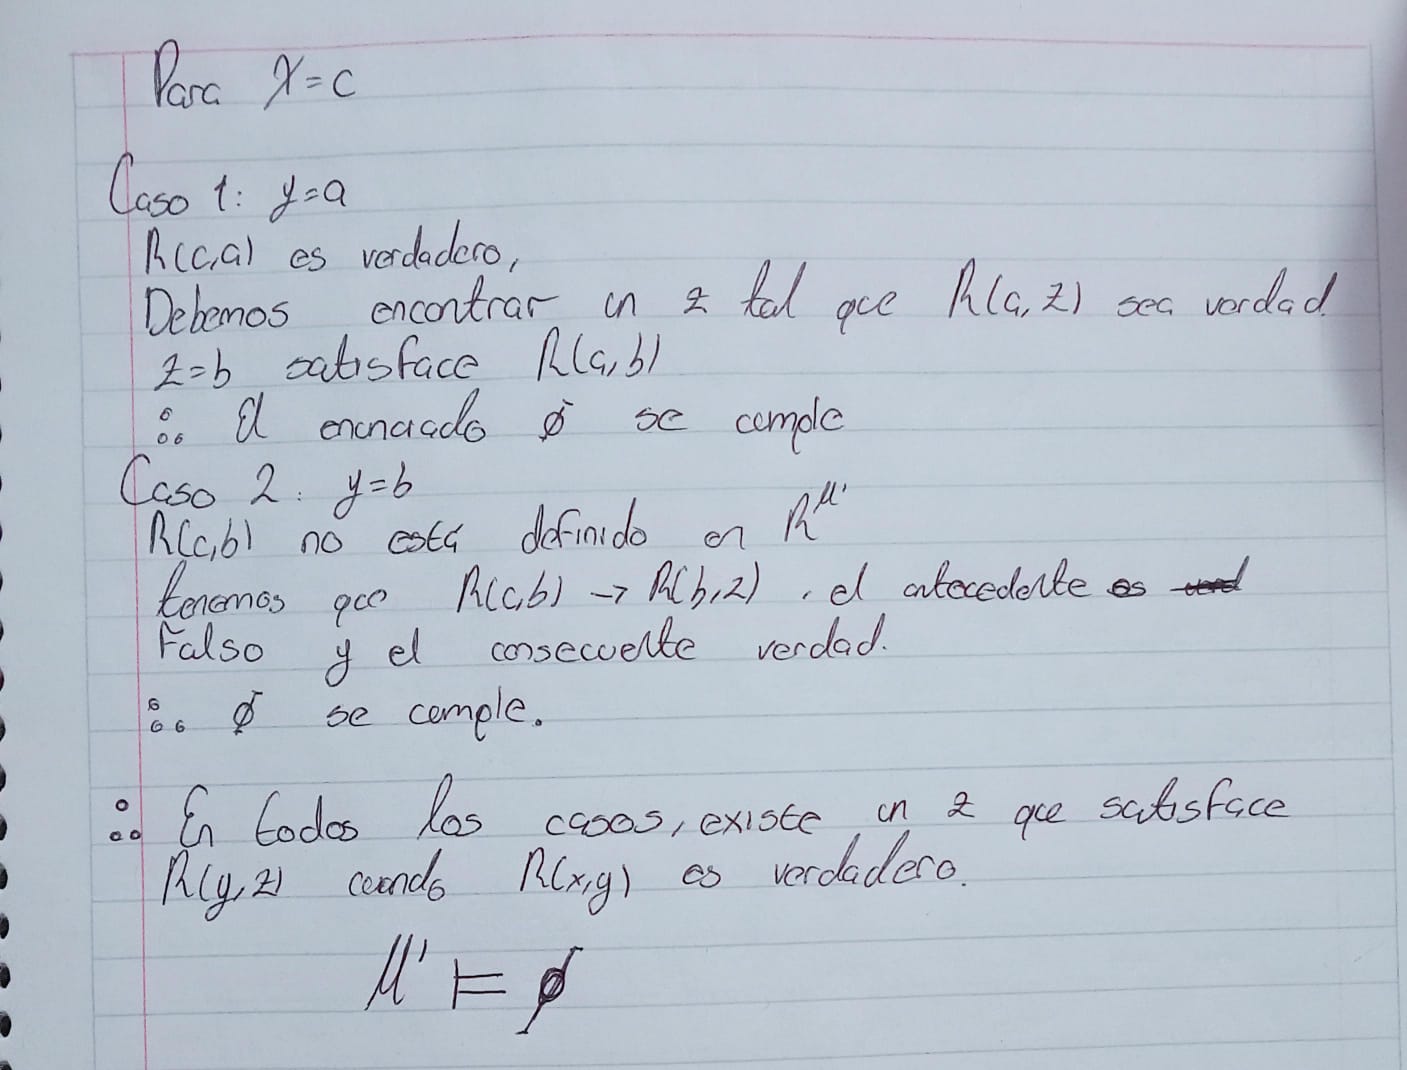 Para X=c
Caso 1: y=a
R(c,a) es verdadero,
Debemos encontrar un z tal que R(a,z) sea verdad.
z=b satisface R(a,b)
∴ El enunciado ϕ se cumple
Caso 2: y=b
R(c,b) no está definido en R^M'
tenemos que R(c,b) → R(b,z), el antecedente es
Falso y el consecuente verdad.
∴ ϕ se cumple.
∴ En todos los casos, existe un z que satisface
R(y,z) cuando R(x,y) es verdadero.
M' ⊨ ϕ